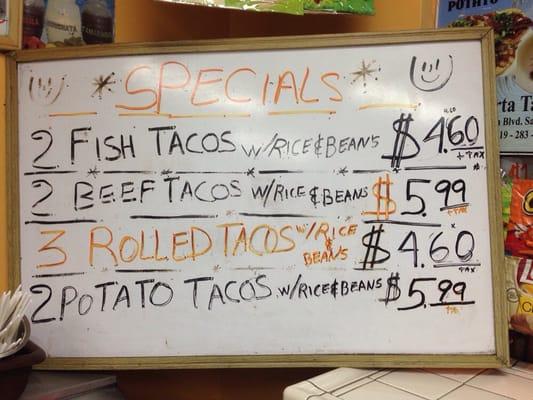 HORCHATA
TAMARINDO
POTATO
SPECIALS
2 FISH TACOS W/RICE & BEANS $4.60 + TAX
2 BEEF TACOS W/RICE & BEANS $5.99 + TAX
3 ROLLED TACOS W/RICE & BEANS $4.60 + TAX
2 POTATO TACOS W/RICE & BEANS $5.99
rta Ta
n Blvd. Sa
19 - 283 -